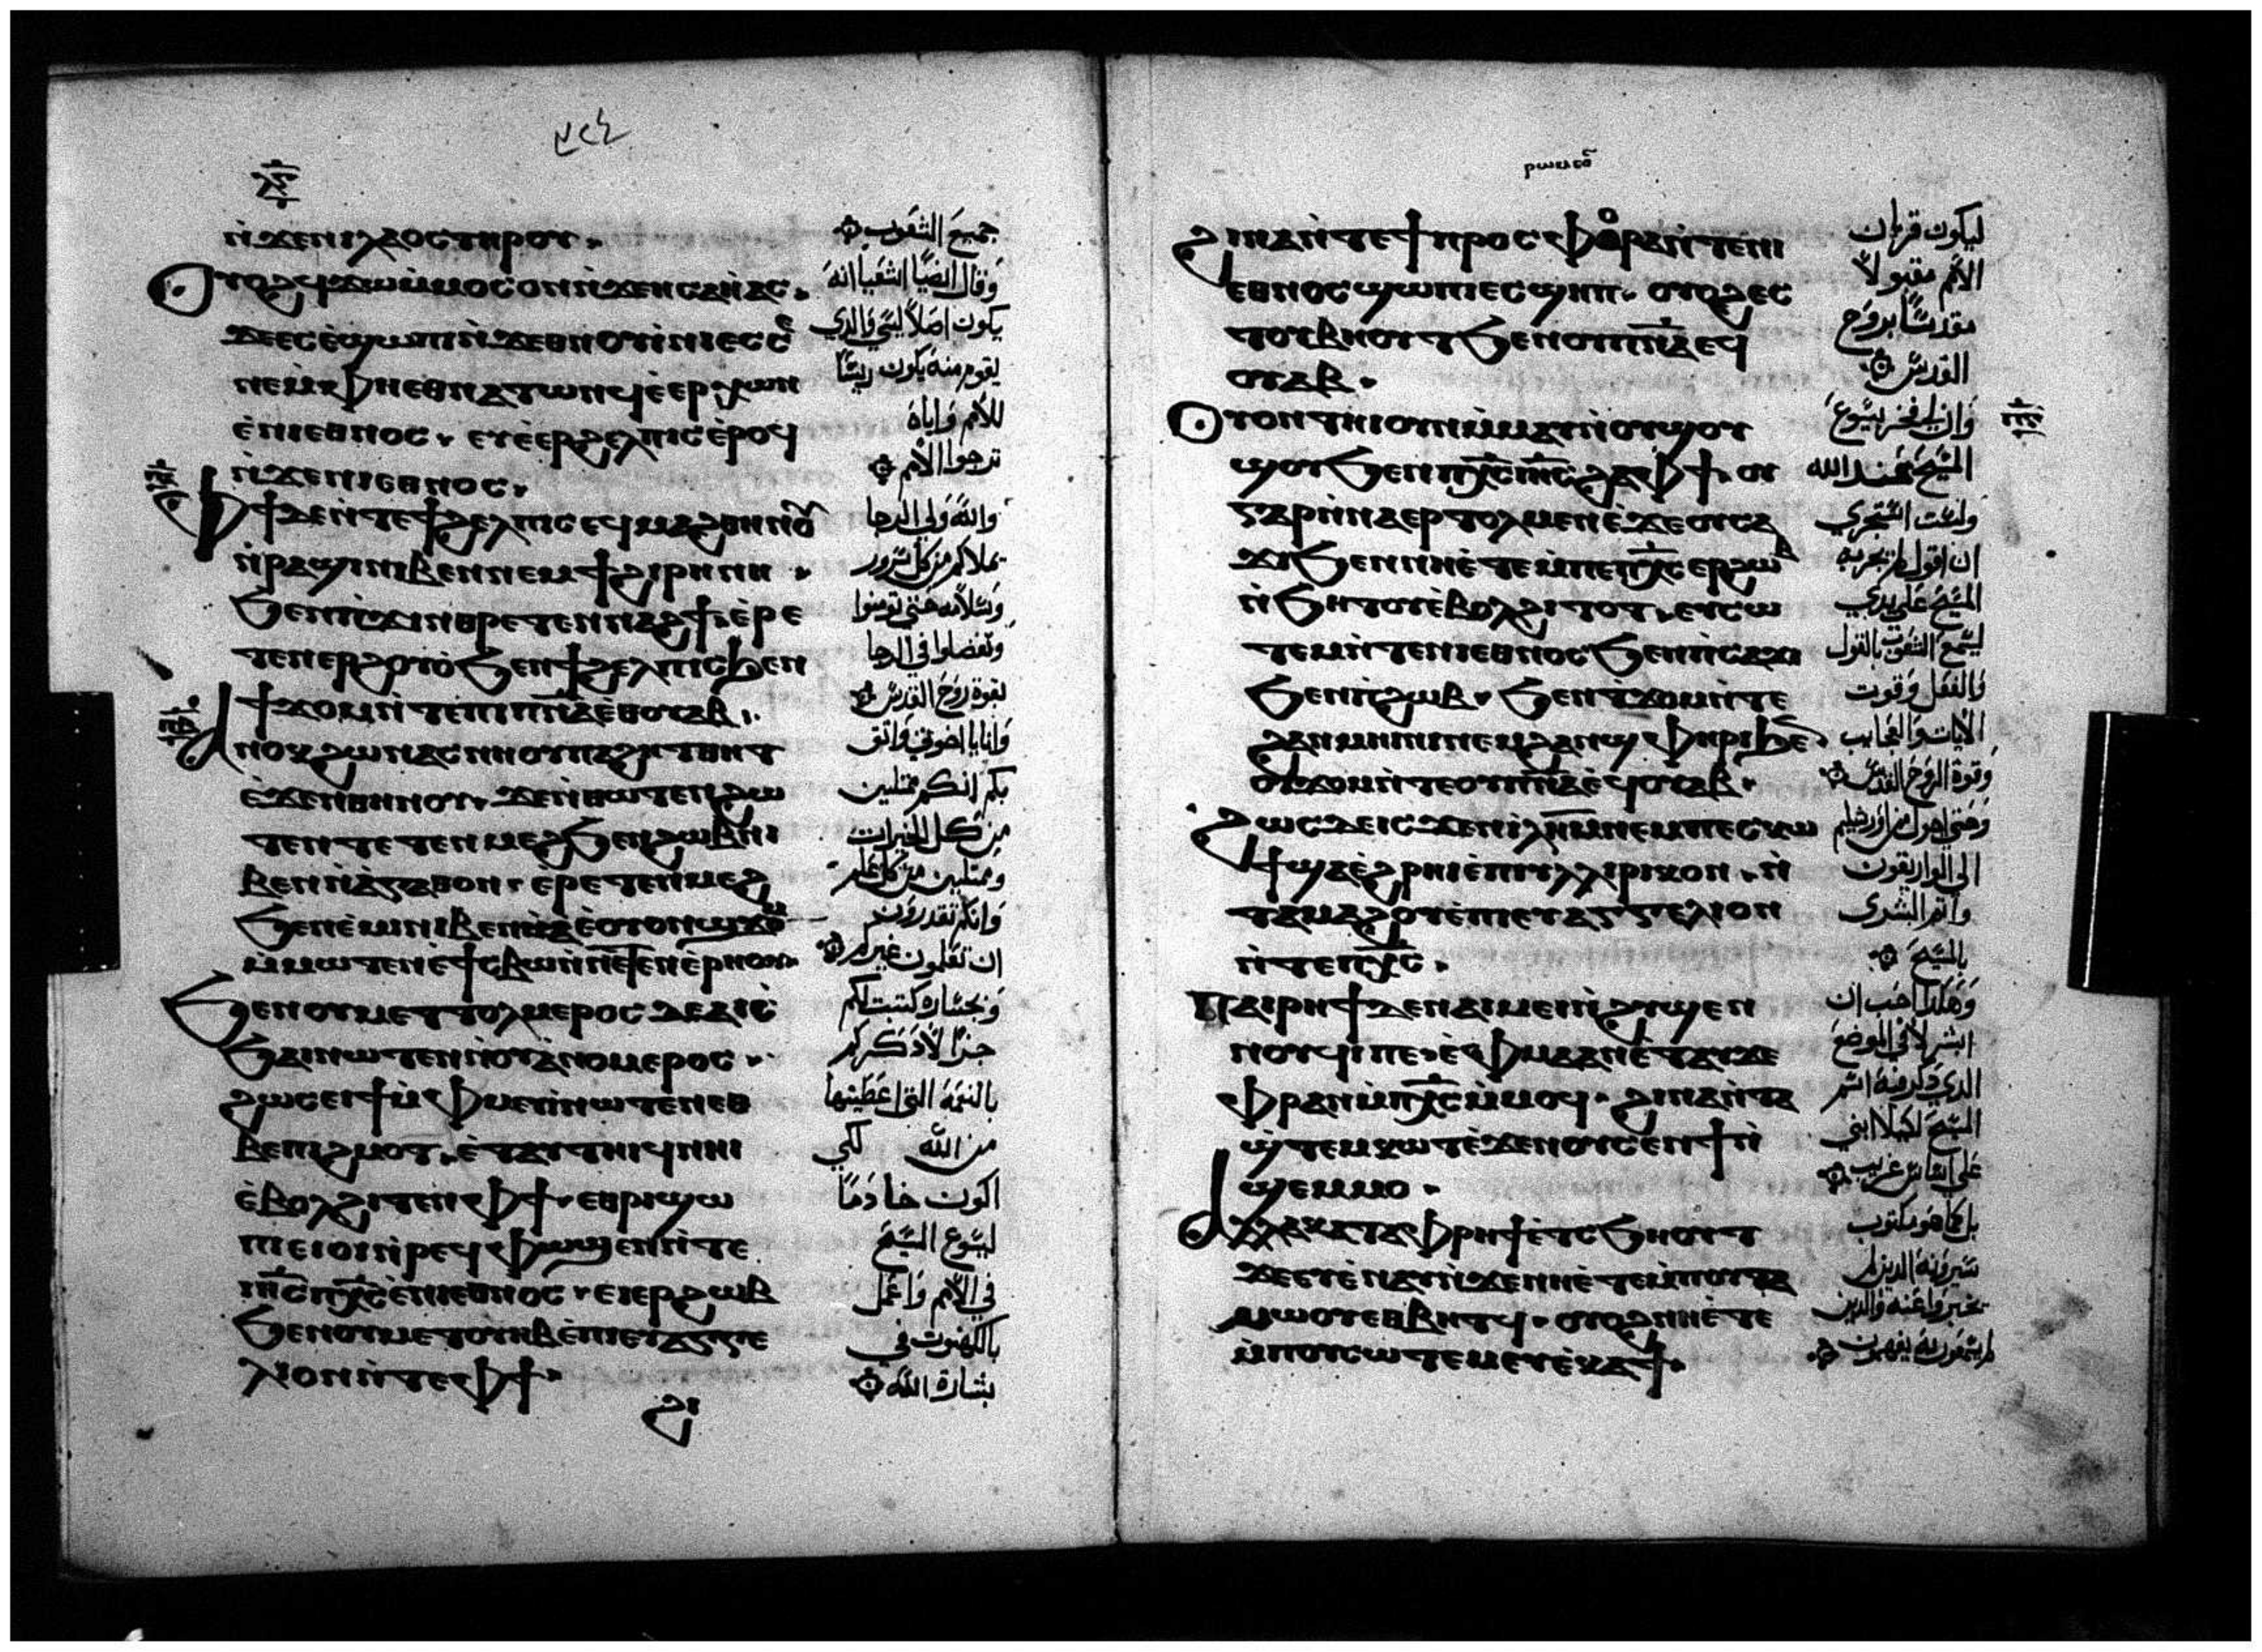 ⲛ̀ϫⲉⲛⲓⲗⲁⲟⲥⲧⲏⲣⲟⲩ·
ⲟⲩⲟϩϥϫⲱⲙ̀ⲙⲟⲥⲟⲛⲛ̀ϫⲉⲏⲥⲁⲏ̀ⲁⲥ·
ϫⲉⲉⲥⲉ̀ϣⲱⲡⲓⲛ̀ϫⲉⲑⲛⲟⲩⲛⲓ̀ⲛⲓⲉⲥⲥⲉ
ⲛⲉⲙⲫⲏⲉⲑⲛⲁⲧⲱⲛϥⲉ̀ⲉⲣⲁⲣⲭⲱⲛ
ⲉ̀ⲛⲓⲉⲑⲛⲟⲥ· ⲉⲩⲉ̀ⲉⲣϩⲉⲗⲡⲓⲥⲉ̀ⲣⲟϥ
ⲛ̀ϫⲉⲛⲓⲉⲑⲛⲟⲥ·
ⲫϯⲇⲉⲛ̀ⲧⲉϯϩⲉⲗⲡⲓⲥⲉϥⲙⲁϩⲑⲏⲛⲟⲩ
ⲛ̀ⲣⲁϣⲓⲛⲓⲃⲉⲛⲛⲉⲙϯϩⲓⲣⲏⲛⲏ·
ϧⲉⲛⲡ̀ϫⲓⲛⲑⲣⲉⲧⲉⲛⲛⲁϩϯⲉ̀ⲣⲉ
ⲧⲉⲛⲉⲣϩⲟⲩⲟ̀ϧⲉⲛϯϩⲉⲗⲡⲓⲥϧⲉⲛ
ϯϫⲟⲙⲛ̀ⲧⲉⲡⲓⲡⲛⲁⲉ̀ⲑⲟⲩⲁⲃ·
ⲁⲛⲟⲕϩⲱⲛⲁⲥⲛⲏⲟⲩⲡⲁϩⲏⲧⲑⲏⲧ
ⲉ̀ϫⲉⲛⲑⲏⲛⲟⲩ· ϫⲉⲛ̀ⲑⲱⲧⲉⲛϩⲱ
ⲧⲉⲛⲧⲉⲧⲉⲛⲙⲉϩϧⲉⲛϩⲱⲃⲛⲓ
ⲃⲉⲛⲛ̀ⲁ̀ⲅⲁⲑⲟⲛ· ⲉ̀ⲣⲉⲧⲉⲛⲙⲉϩ
ϧⲉⲛⲉ̀ⲙⲓⲛⲓⲃⲉⲛⲉ̀ⲟⲩⲟⲛϣϫⲟⲙ
ⲙ̀ⲙⲱⲧⲉⲛⲉ̀ϯⲥⲃⲱⲛ̀ⲛⲉⲧⲉⲛⲉ̀ⲣⲏⲟⲩ·
ϧⲉⲛⲟⲩⲙⲉⲧⲧⲟⲗⲙⲉⲣⲟⲥⲇⲉⲁⲓⲥ̀
ϧⲁⲓⲛⲱⲧⲉⲛⲛ̀ⲟⲩⲁ̀ⲡⲟⲙⲉⲣⲟⲥ·
ϩⲱⲥⲉⲓϯⲙ̀ⲫⲙⲉⲩⲓ̀ⲛⲱⲧⲉⲛⲉⲑ
ⲃⲉⲡⲓϩⲙⲟⲧ· ⲉ̀ⲧⲁⲩⲧⲏⲓϥⲛⲏⲓ
ⲉ̀ⲃⲟⲗϩⲓⲧⲉⲛⲫϯ· ⲉⲑⲣⲓϣⲱ
ⲡⲉⲓⲟⲓⲛ̀ⲣⲉϥⲫⲱϣⲉⲛⲛ̀ⲧⲉ
ⲓⲏⲥⲡⲭⲥⲉ̀ⲛⲓⲉⲑⲛⲟⲥ· ⲉⲓⲉⲣϩⲱⲃ
ϧⲉⲛⲟⲩⲙⲉⲧⲟⲩⲏⲃⲉ̀ⲡⲓⲉⲩⲁⲅⲅⲉ
ⲗⲓⲟⲛⲛ̀ⲧⲉⲫϯ·
ϩⲓ
جميع الشعوب
وقال ايضا اشعيا انه
يكون اصلا ليسى والذي
يقوم منه يكون ريسا
للامم واياه
ترجوا الامم
والله ولي الرجا
يملاكم من كل سرور
وسلامه حتى تومنوا
وتفضلوا في الرجا
لقوة روح القدس
وانا يا اخوتي واثق
بكم انكم ممتلين
من كل الخيرات
وممتلين من كل علم
وانكم تقدرون
ان تعلمون غيركم
وبجساره كتبت لكم
جزا لاذكركم
بالنعمة التي اعطيتها
من الله لكي
اكون خادما
ليسوع المسيح
في الامم واعمل
بالكهنوت في
بشارة الله
ϩⲓⲛⲁⲛ̀ⲧⲉϯⲡⲣⲟⲥⲫⲟⲣⲁⲛ̀ⲧⲉⲛⲓ
ⲉⲑⲛⲟⲥϣⲱⲡⲓⲉⲥϣⲏⲡ· ⲟⲩⲟϩⲉⲥ
ⲧⲟⲩⲃⲏⲟⲩⲧϧⲉⲛⲟⲩⲡⲛⲁⲉϥ
ⲟⲩⲁⲃ·
ⲟⲩⲟⲛⲧⲏⲓⲟⲩⲛⲙ̀ⲙⲁⲩⲛ̀ⲟⲩϣⲟⲩ
ϣⲟⲩϧⲉⲛⲡⲭⲥⲓⲏⲥϩⲁⲫϯ· ⲟⲩ
ⲅⲁⲣⲛ̀ⲛⲁⲉⲣⲧⲟⲗⲙⲉⲛⲉ̀ϫⲉⲟⲩⲥⲁ
ϫⲓϧⲉⲛⲛⲏⲉ̀ⲧⲉⲙ̀ⲡⲉⲡⲭⲥⲉⲣϩⲱⲃ
ⲛ̀ϧⲏⲧⲟⲩⲉ̀ⲃⲟⲗϩⲓⲧⲟⲧ· ⲉⲩⲥⲱ
ⲧⲉⲙⲛ̀ⲧⲉⲛⲓⲉⲑⲛⲟⲥϧⲉⲛⲡ̀ⲥⲁϫⲓ
ϧⲉⲛⲡ̀ϩⲱⲃ· ϧⲉⲛⲧϫⲟⲙⲛ̀ⲧⲉ
ϩⲁⲛⲙⲏⲓⲛⲓⲛⲉⲙϩⲁⲛϣⲫⲏⲣⲓϧⲉⲛ
ⲟⲩϫⲟⲙⲛ̀ⲧⲉⲟⲩⲡⲛⲁⲉ̀ϥⲟⲩⲁⲃ·
ϩⲱⲥⲇⲉⲓⲥϫⲉⲛⲓⲗⲏⲙⲛⲉⲙⲡⲉⲥⲕⲱ
ϯϣⲁⲉ̀ϩⲣⲏⲓⲉ̀ⲡⲓⲩⲗⲗⲓⲣⲓⲕⲟⲛ· ⲛ̀
ⲧⲁⲙⲁϩⲟⲩⲉ̀ⲡⲓⲉⲩⲁⲅⲅⲉⲗⲓⲟⲛ
ⲛ̀ⲧⲉⲡⲭⲥ·
ⲡⲁⲓⲣⲏϯⲇⲉⲛⲁⲓⲙⲉⲓⲛ̀ϩⲓϣⲉⲛ
ⲛⲟⲩϥⲓⲡⲉ· ⲉ̀ⲫⲙⲁⲁⲛⲉ̀ⲧⲁⲩϫⲉ
ⲫⲣⲁⲛⲙ̀ⲡⲭⲥⲙ̀ⲙⲟϥ· ϩⲓⲛⲁⲛ̀ⲧⲁ
ϣ̀ⲧⲉⲙⲕⲱⲧⲉ̀ϫⲉⲛⲟⲩⲥⲉⲛϯⲛ̀
ϣⲉⲙⲙⲟ·
ⲁⲗⲗⲁⲕⲁⲧⲁⲫⲣⲏϯⲉ̀ⲧⲥϧⲏⲟⲩⲧ
ϫⲉⲉⲩⲉ̀ⲛⲁⲩⲛ̀ϫⲉⲛⲏⲉ̀ⲧⲉⲙ̀ⲡⲟⲩⲧⲁ
ⲙⲱⲟⲩⲉⲑⲃⲏⲧϥ· ⲟⲩⲟϩⲛⲏⲉ̀ⲧⲉ
ⲙ̀ⲡⲟⲩⲥⲱⲧⲉⲙⲉⲩⲉ̀ⲕⲁϯ·
ليكون قربان
الامم مقبولا
مقدسا بروح
القدس
وان لي فخر بيسوع
المسيح عند الله
ولست استجري
ان اقول ما لم يجريه
المسيح على يدي
ليسمع الشعوب بالقول
والفعل وقوت
الايات والعجايب
وقوة الروح القدس
وحتى اجول من اورشليم
الى الواريقون
واتم البشرى
بالمسيح
وهكذا احب ان
ابشر لا في الموضع
الذي ذكر فيه اسم
المسيح لكيلا ابني
على اساس غريب
بل كما هو مكتوب
سيرونه الذين لم
يخبروا عنه والذين
لم يسمعون به يفهمون